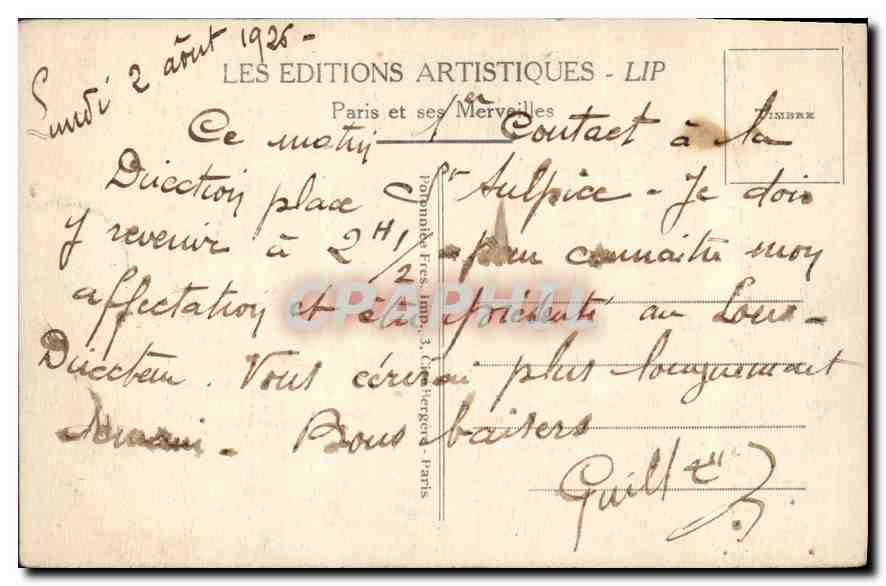 Lundi 2 août 1926 -
LES EDITIONS ARTISTIQUES - LIP
Paris et ses Merveilles
TIMBRE
Ce matin 1er Contact à la
Direction place St Sulpice - Je dois
y revenir à 2H 1/2 - pour connaitre mon
affectation et être présenté au Sous-
Directeur. Vous écrirai plus longuement
demain. Bons baisers
Polonnide Fres. Imp., 3, Cité Bergère - Paris
CPAPHIL